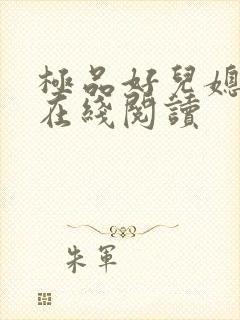 極品好兒媳
在綫閱讀
朱軍